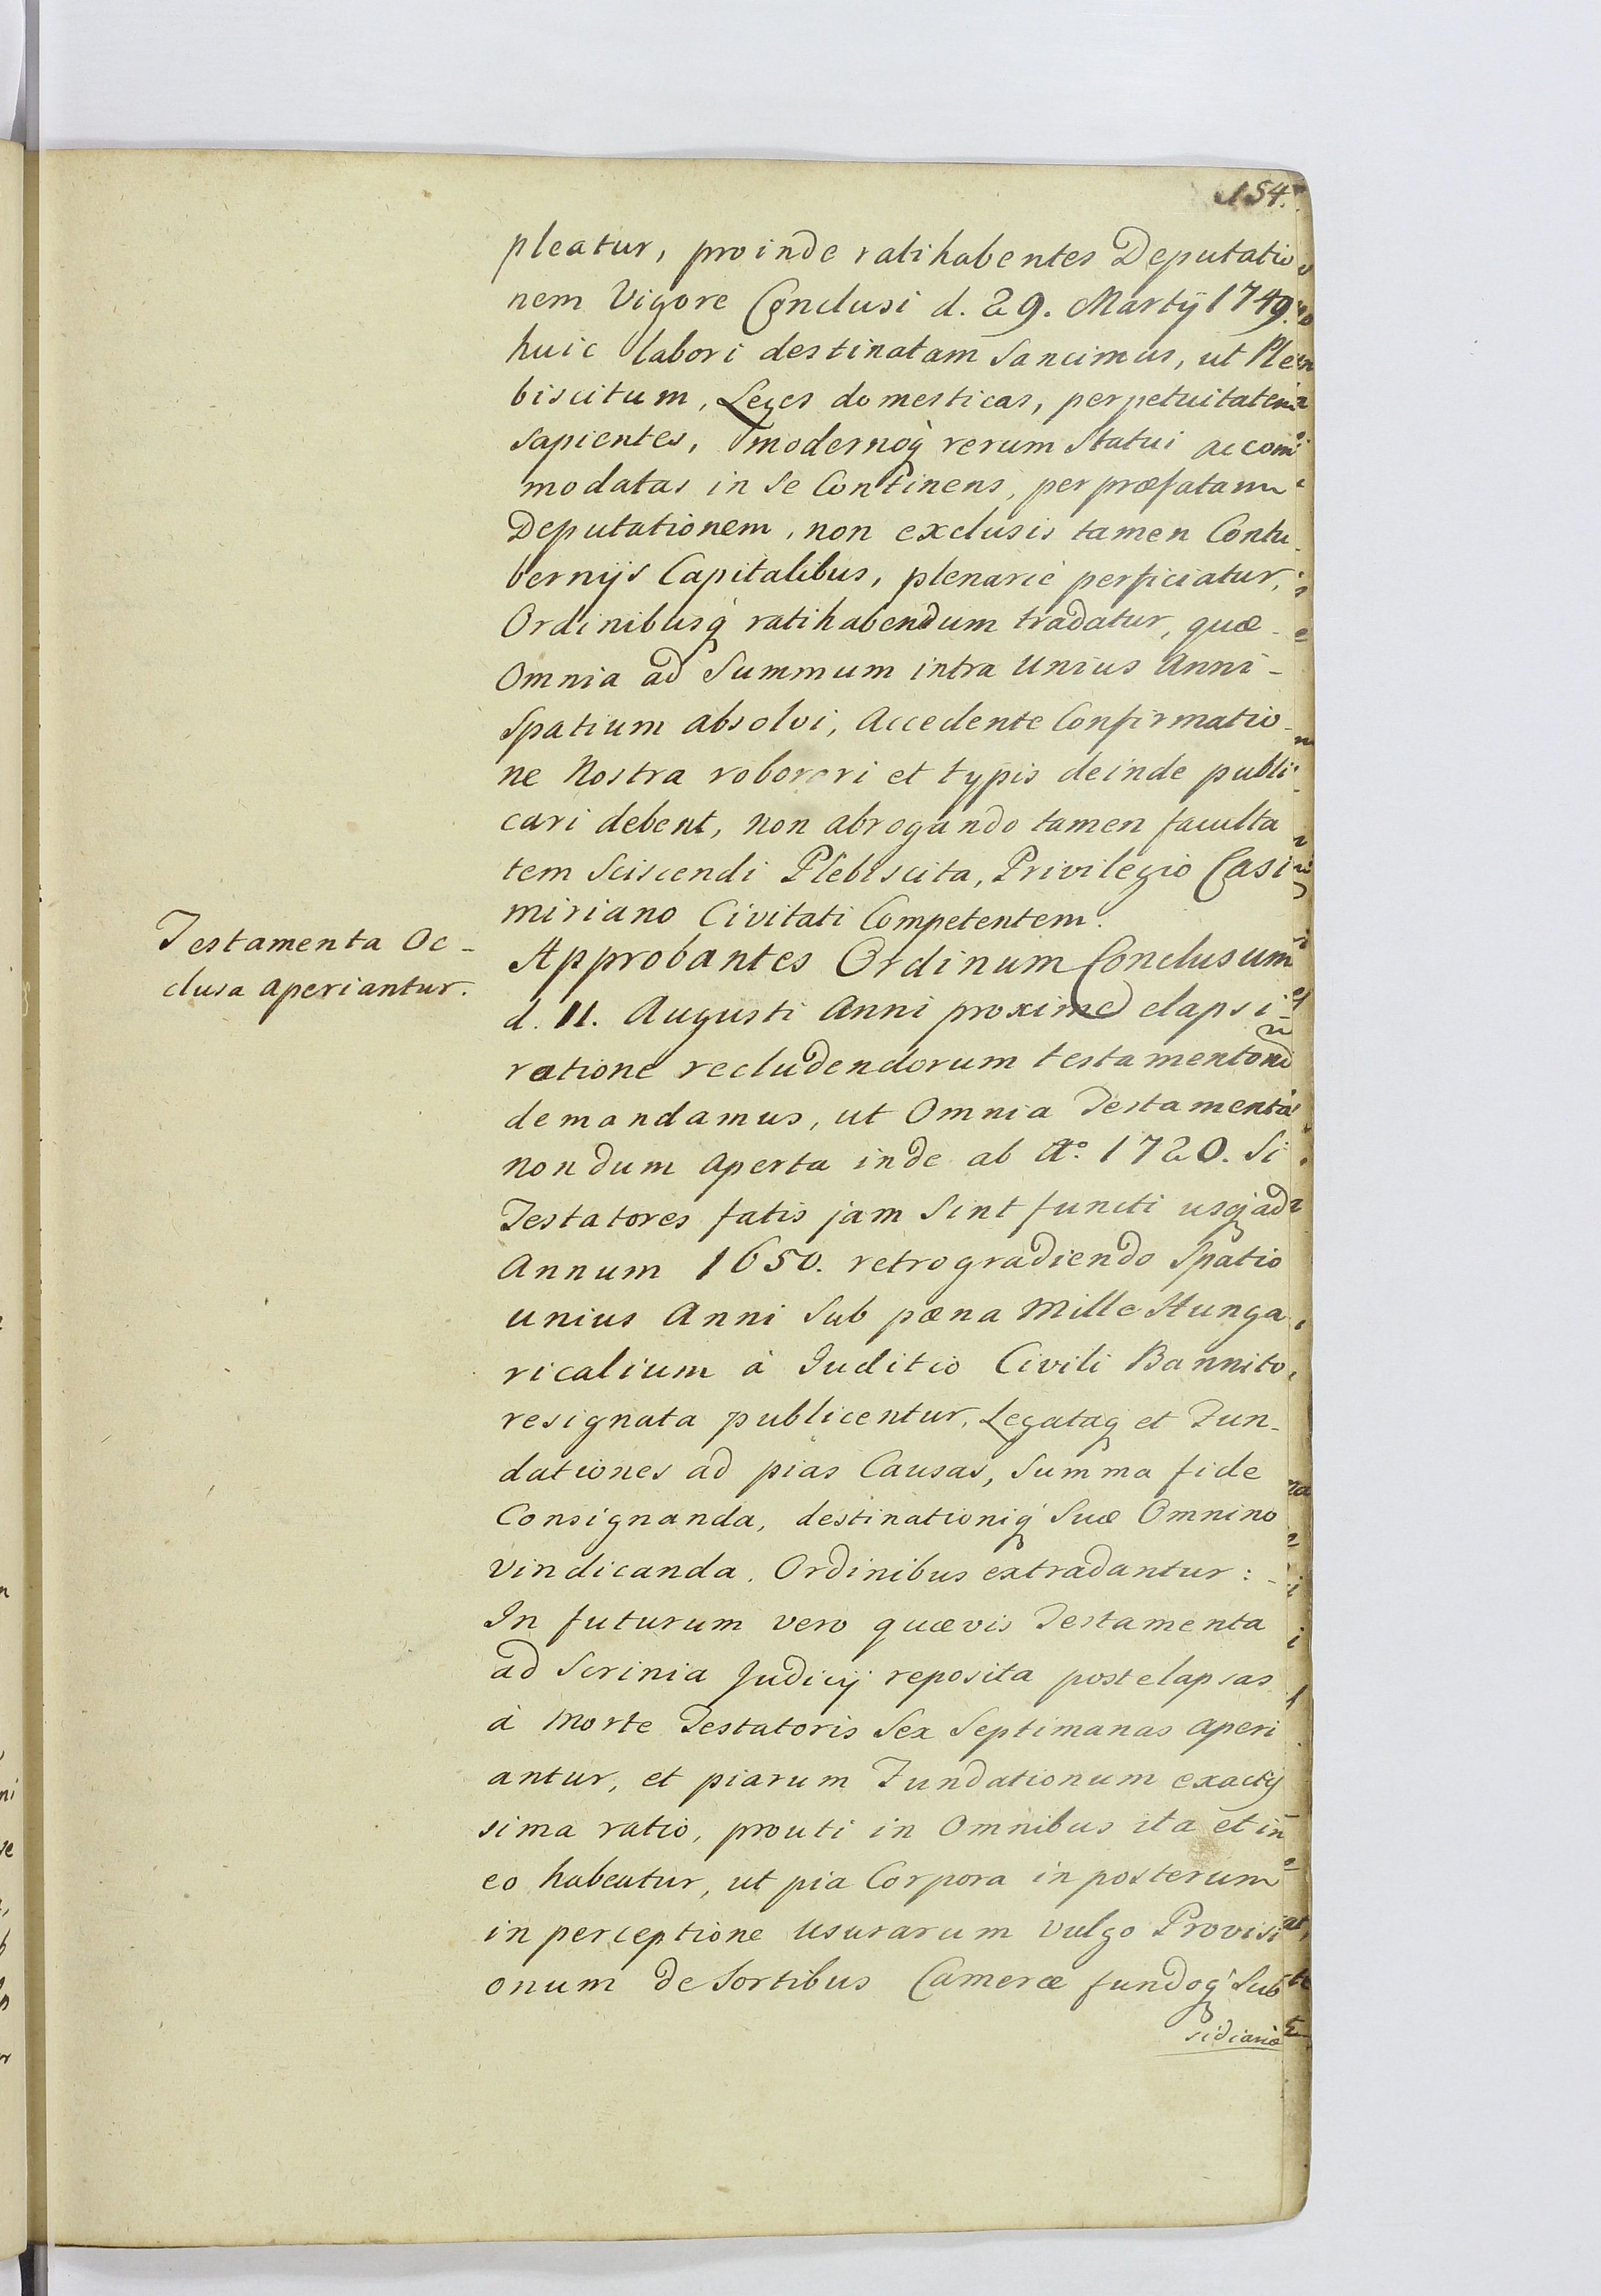 154.
pleatur, proinde ratihabentes Deputatio
nem Vigore Conclusi d. 29. Martij 1749.
huic labori destinatam Sancimus, ut Ple
biscitum, Leges domesticas, perpetuitatem
sapientes, modernoq́ rerum Statui accom
modatas in se Continens, per præfatam
Deputationem, non exclusis tamen Contu
bernijs Capitalibus, plenarie perficiatur,
Ordinibusq́ ratihabendum tradatur, quæ
Omnia ad Summum intra Unius Anni
Spatium absolvi, Accedente Confirmatio
ne Nostra roborari et typis deinde publi
cari debent, non abrogando tamen faculta
tem Sciscendi Plebiscita, Privilegio Casi
miriano Civitati Competentem.
Testamenta Oc-
clusa aperiantur.
Approbantes Ordinum Conclusum
d. 11. Augusti Anni proxime elapsi
ratione recludendorum testamentorum
demandamus, ut Omnia Testamenta
nondum Aperta inde ab Aº. 1720. Si
Testatores fatis jam Sint functi usq́ ad
Annum 1650. retrogradiendo Spatio
unius Anni Sub pæna Mille Hunga
ricalium à Juditio Civili Bannito
resignata publicentur, Legataq́ et Fun-
dationes ad pias Causas, Summa fide
Consignanda, destinationiq́ Suæ Omnino
Vindicanda, Ordinibus extradantur:
In futurum vero quævis Testamenta
ad Scrinia Judicij reposita post elapsas
à Morte Testatoris Sex Septimanas Aperi
antur, et piarum Fundationum exactis
sima ratio, prouti in Omnibus ita et in
eo habeatur, ut pia Corpora in posterum
in perceptione Usurarum vulgo Provisi
onum de Sortibus Cameræ fundoq́ Sub
sidiario